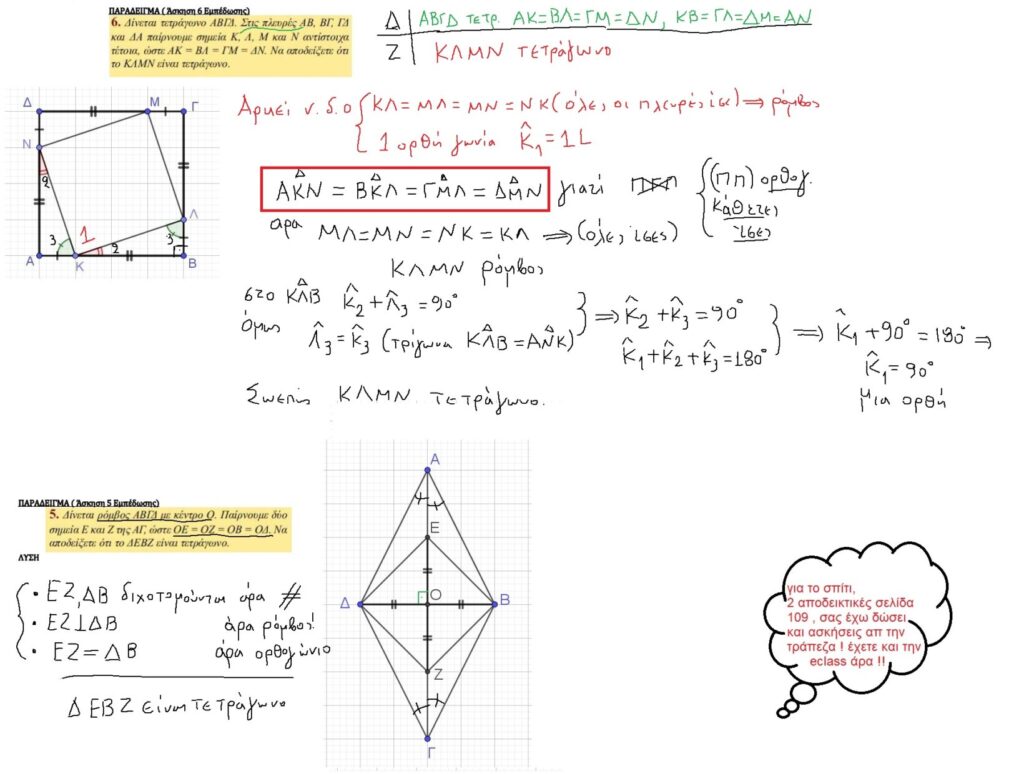 ΠΑΡΑΔΕΙΓΜΑ ( Άσκηση 6 Εμπέδωσης)
6. Δίνεται τετράγωνο ΑΒΓΔ. Στις πλευρές ΑΒ, ΒΓ, ΓΔ
και ΔΑ παίρνουμε σημεία Κ, Λ, Μ και Ν αντίστοιχα
τέτοια, ώστε ΑΚ = ΒΛ = ΓΜ = ΔΝ. Να αποδείξετε ότι
το ΚΛΜΝ είναι τετράγωνο.
Δ | ΑΒΓΔ τετρ. ΑΚ=ΒΛ=ΓΜ=ΔΝ, ΚΒ=ΓΛ=ΔΜ=ΑΝ
Ζ | ΚΛΜΝ τετράγωνο
Δ Μ Γ
Ν
2
Λ
3 1 2 3
Α Κ Β
Αρκεί ν.δ.ο { ΚΛ=ΜΛ=ΜΝ=ΝΚ (όλες οι πλευρές ίσες) ⟹ ρόμβος
1 ορθή γωνία K̂₁ = 1L
ΑΚΝ = ΒΚΛ = ΓΜΛ = ΔΜΝ γιατί ΠΓΠ { (ΠΠ) ορθογ.
κάθετες
ίσες
άρα ΜΛ=ΜΝ=ΝΚ=ΚΛ ⟹ (όλες ίσες)
ΚΛΜΝ ρόμβος
στο ΚΛΒ K̂₂ + Λ̂₃ = 90°
όμως Λ̂₃ = K̂₃ (τρίγωνα ΚΛΒ = ΑΝΚ) } ⟹ K̂₂ + K̂₃ = 90°
K̂₁ + K̂₂ + K̂₃ = 180° } ⟹ K̂₁ + 90° = 180° ⟹
K̂₁ = 90°
μια ορθή
Συνεπώς ΚΛΜΝ τετράγωνο.
ΠΑΡΑΔΕΙΓΜΑ ( Άσκηση 5 Εμπέδωσης)
5. Δίνεται ρόμβος ΑΒΓΔ με κέντρο Ο. Παίρνουμε δύο
σημεία Ε και Ζ της ΑΓ, ώστε ΟΕ = ΟΖ = ΟΒ = ΟΔ. Να
αποδείξετε ότι το ΔΕΒΖ είναι τετράγωνο.
ΛΥΣΗ
• ΕΖ, ΔΒ διχοτομούνται άρα #
• ΕΖ⊥ΔΒ άρα ρόμβος!
• ΕΖ = ΔΒ άρα ορθογώνιο
ΔΕΒΖ είναι τετράγωνο
Α
Ε
Δ Ο Β
Ζ
Γ
για το σπίτι,
2 αποδεικτικές σελίδα
109 , σας έχω δώσει
και ασκήσεις απ την
τράπεζα ! έχετε και την
eclass άρα !!